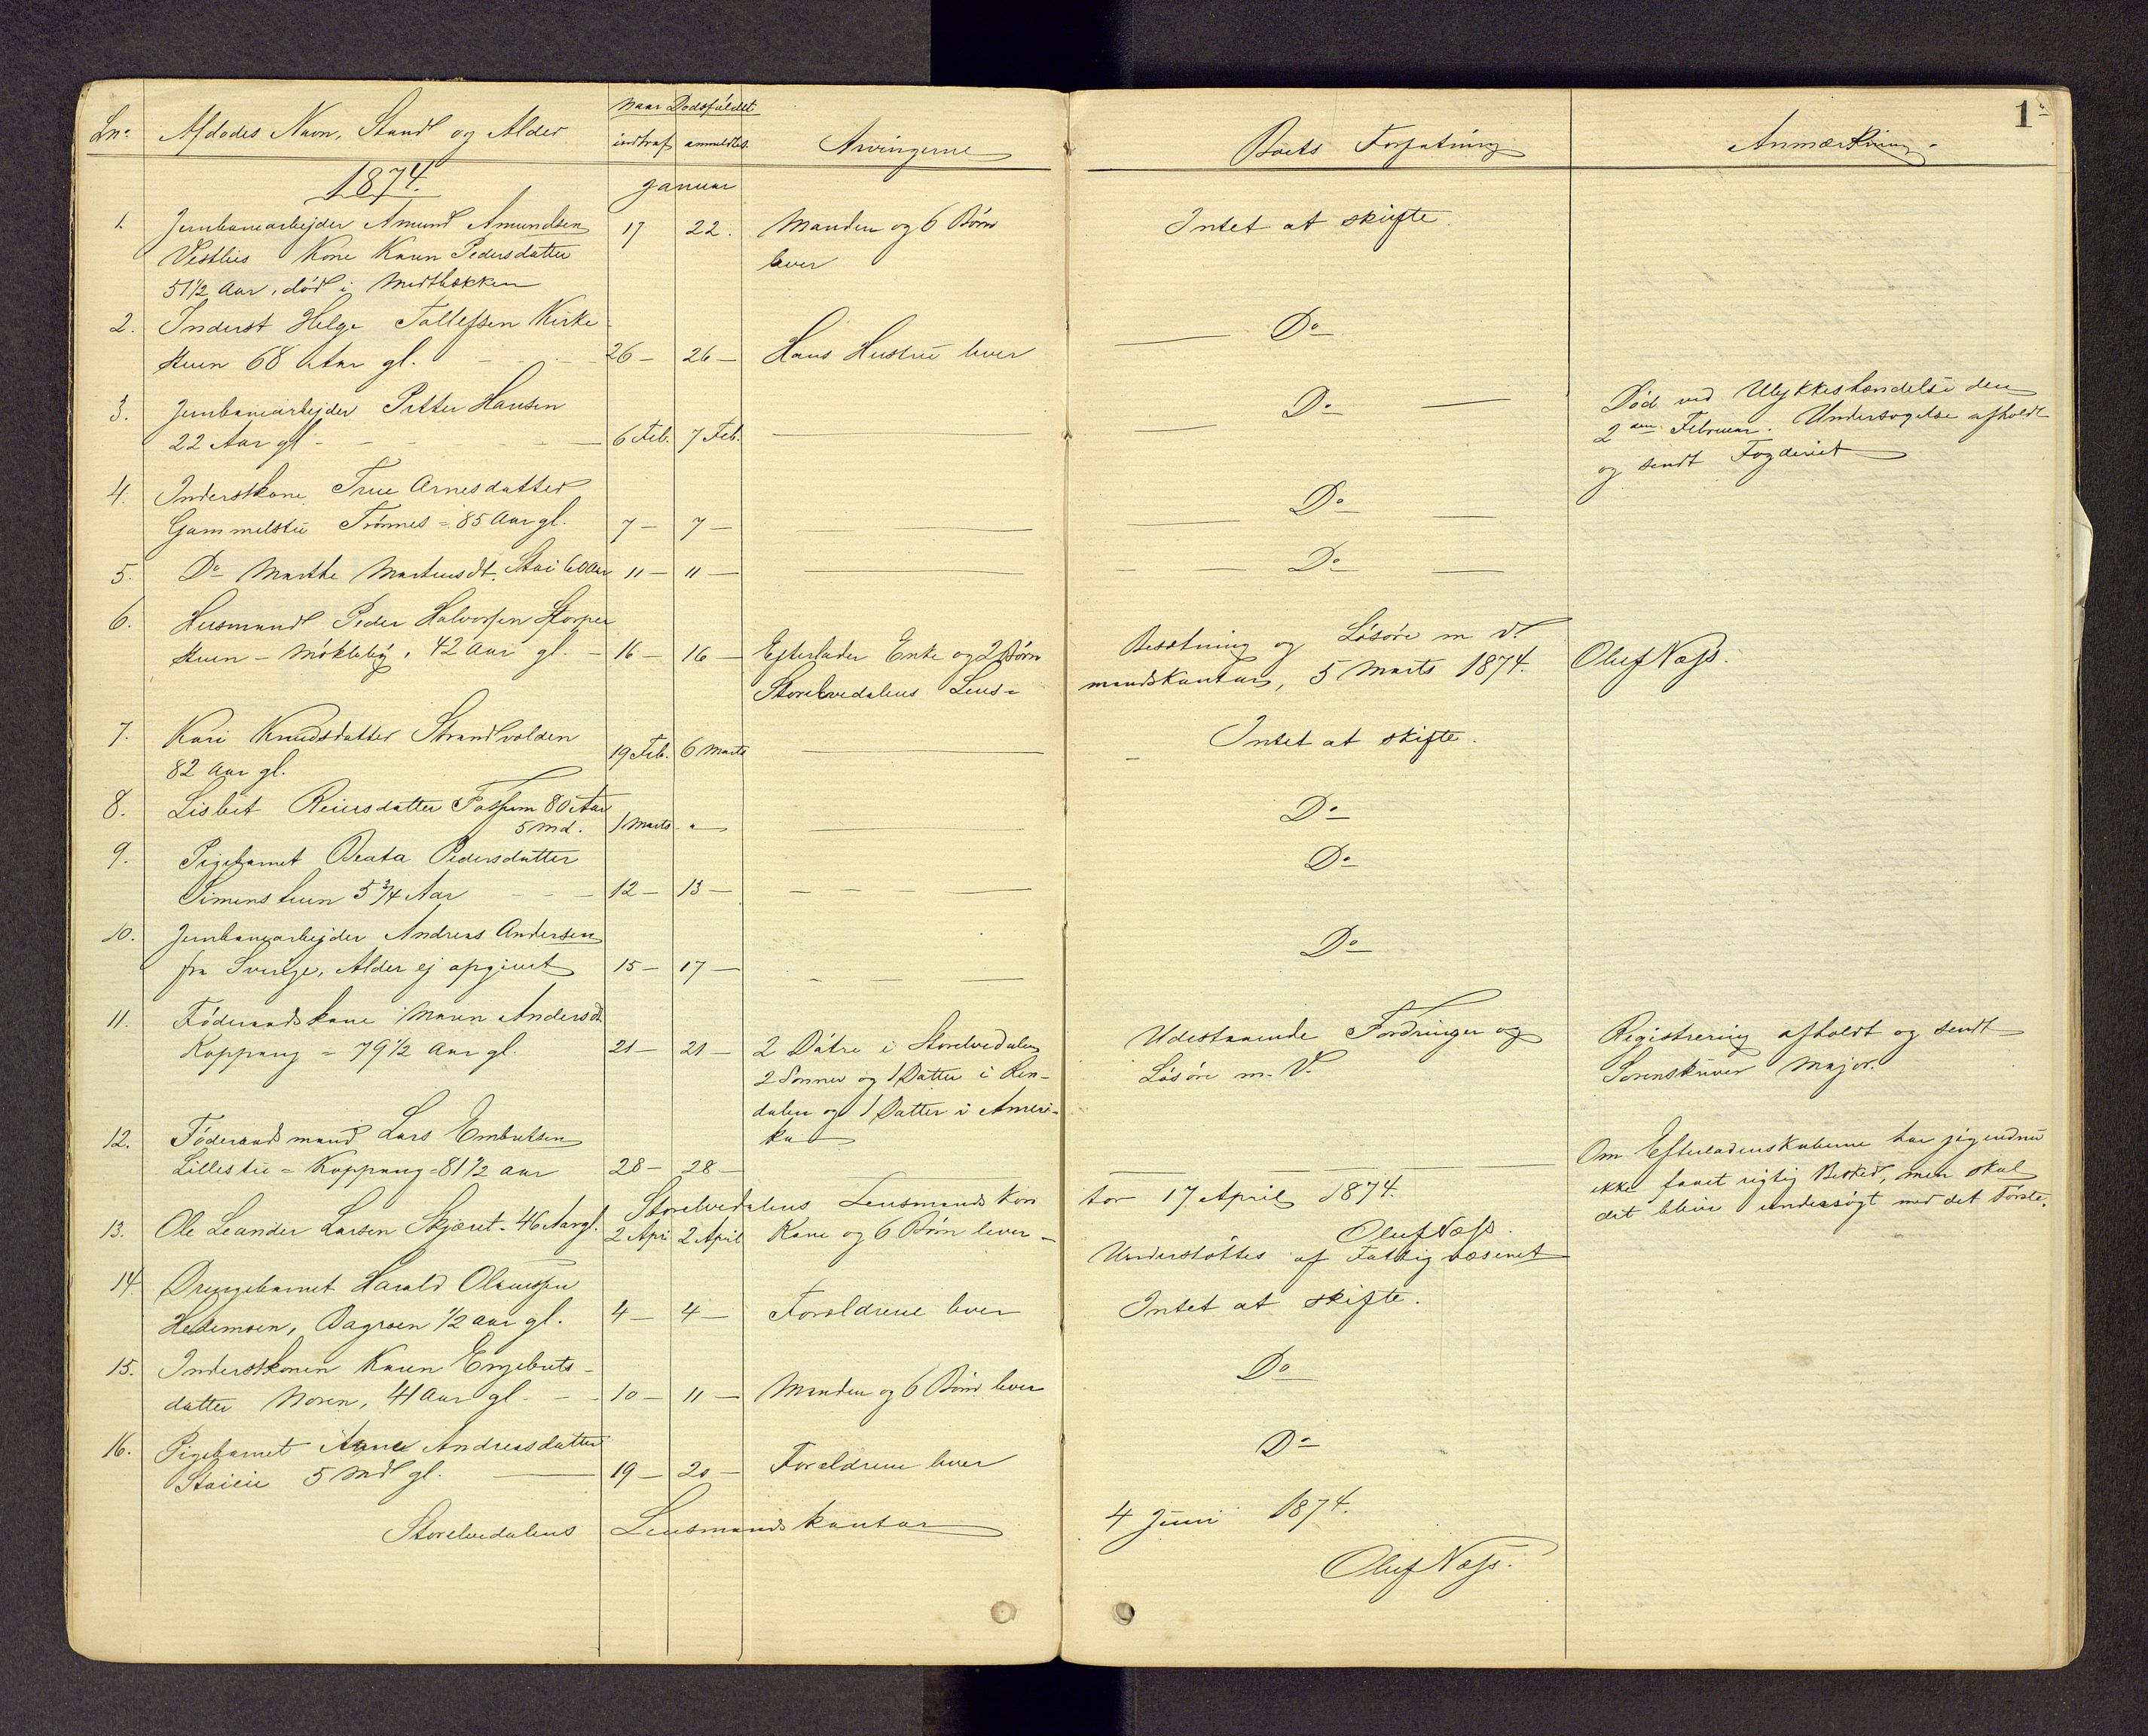 1a
Lno. Afdødes Navn, Stand og Alder Naar Dødsfaldet indtraf anmeldtes Arvingerne Boets Forfatning Anmærkning
1874. Januar
1. Jernbanearbejder Amund Amundsen 17 22. Manden og 6 Børn Intet at skifte.
Vestlies Kone Karen Pedersdatter lever
51 1/2 Aar, død i Midtbækken
2. Inderst Helge Tollefsen Kirke- Do
stuen 68 Aar gl. 26 26 Hans Hustru lever
3. Jernbanearbejder Petter Hansen Do Død ved Ulykkeshændelse den
22 Aar gl 6 Feb. 7 Feb. 2den Februar. Undersøgelse afholdt
og sendt Fogderiet
4. Inderstkone True Arnesdatter Do
Gammelstu Trønnes = 85 Aar gl. 7 7
5. Do Marthe Martinsdt. Stai 60 Aar 11 11 Do
6. Husmand Peder Halvorsen Storper
stuen - Møklebÿ, 42 Aar gl. 16 16 Efterlader Enke og 2 Børn Besætning og Løsøre m. V.
Storelvedalens Lens= mandskontor, 5 Marts 1874. Oluf Næss.
7. Kari Knudsdatter Strandvolden 19 Feb. 6 Marts Intet at skifte.
82 Aar gl.
8. Lisbet Reiersdatter Fossum 80 Aar Do
5 Md. 1 Marts "
9. Pigebarnet Beata Pedersdatter Do
Simenstuen 5 3/4 Aar 12 13
10. Jernbanearbejder Andreas Andersen Do
fra Sverige, Alder ej opgivet 15 17
11. Føderaadskone Maren Andersdt. Udestaaende Fordringer og Registrering afholdt og sendt
Koppang = 79 1/2 Aar gl. 21 21 2 Døtre i Storelvedalen Løsøre m. V. Sorenskriver Major.
2 Sønner og 1 Datter i Ren-
dalen og 1 Datter i Ameri-
ka
12. Føderaadsmand Lars Embretsen Om Efterladenskaberne har jeg endnu
Lillestu = Koppang = 81 1/2 Aar 28 28 ikke faaet rigtig Besked, men skal
Storelvedalens Lensmandskon tor 17 April 1874. det blive undersøgt med det Første.
Oluf Næss.
13. Ole Leander Larsen Skjæret - 46 Aar gl. 2 Apri 2 April Kone og 6 Børn lever Understøttes af Fattigvæsenet
14. Drengebarnet Harald Olaussen
Hedemoen, Bagroen 1/2 Aar gl. 4 4 Forældrene lever Intet at skifte.
15. Inderstkonen Karen Engebrets- Do
datter Moren, 41 Aar gl. 10 11 Manden og 6 Børn lever
16. Pigebarnet Agnes Andreasdatter Do
Staieie 5 Md gl. 19 20 Forældrene lever
Storelvedalens Lensmandskontor 4 Juni 1874.
Oluf Næss.